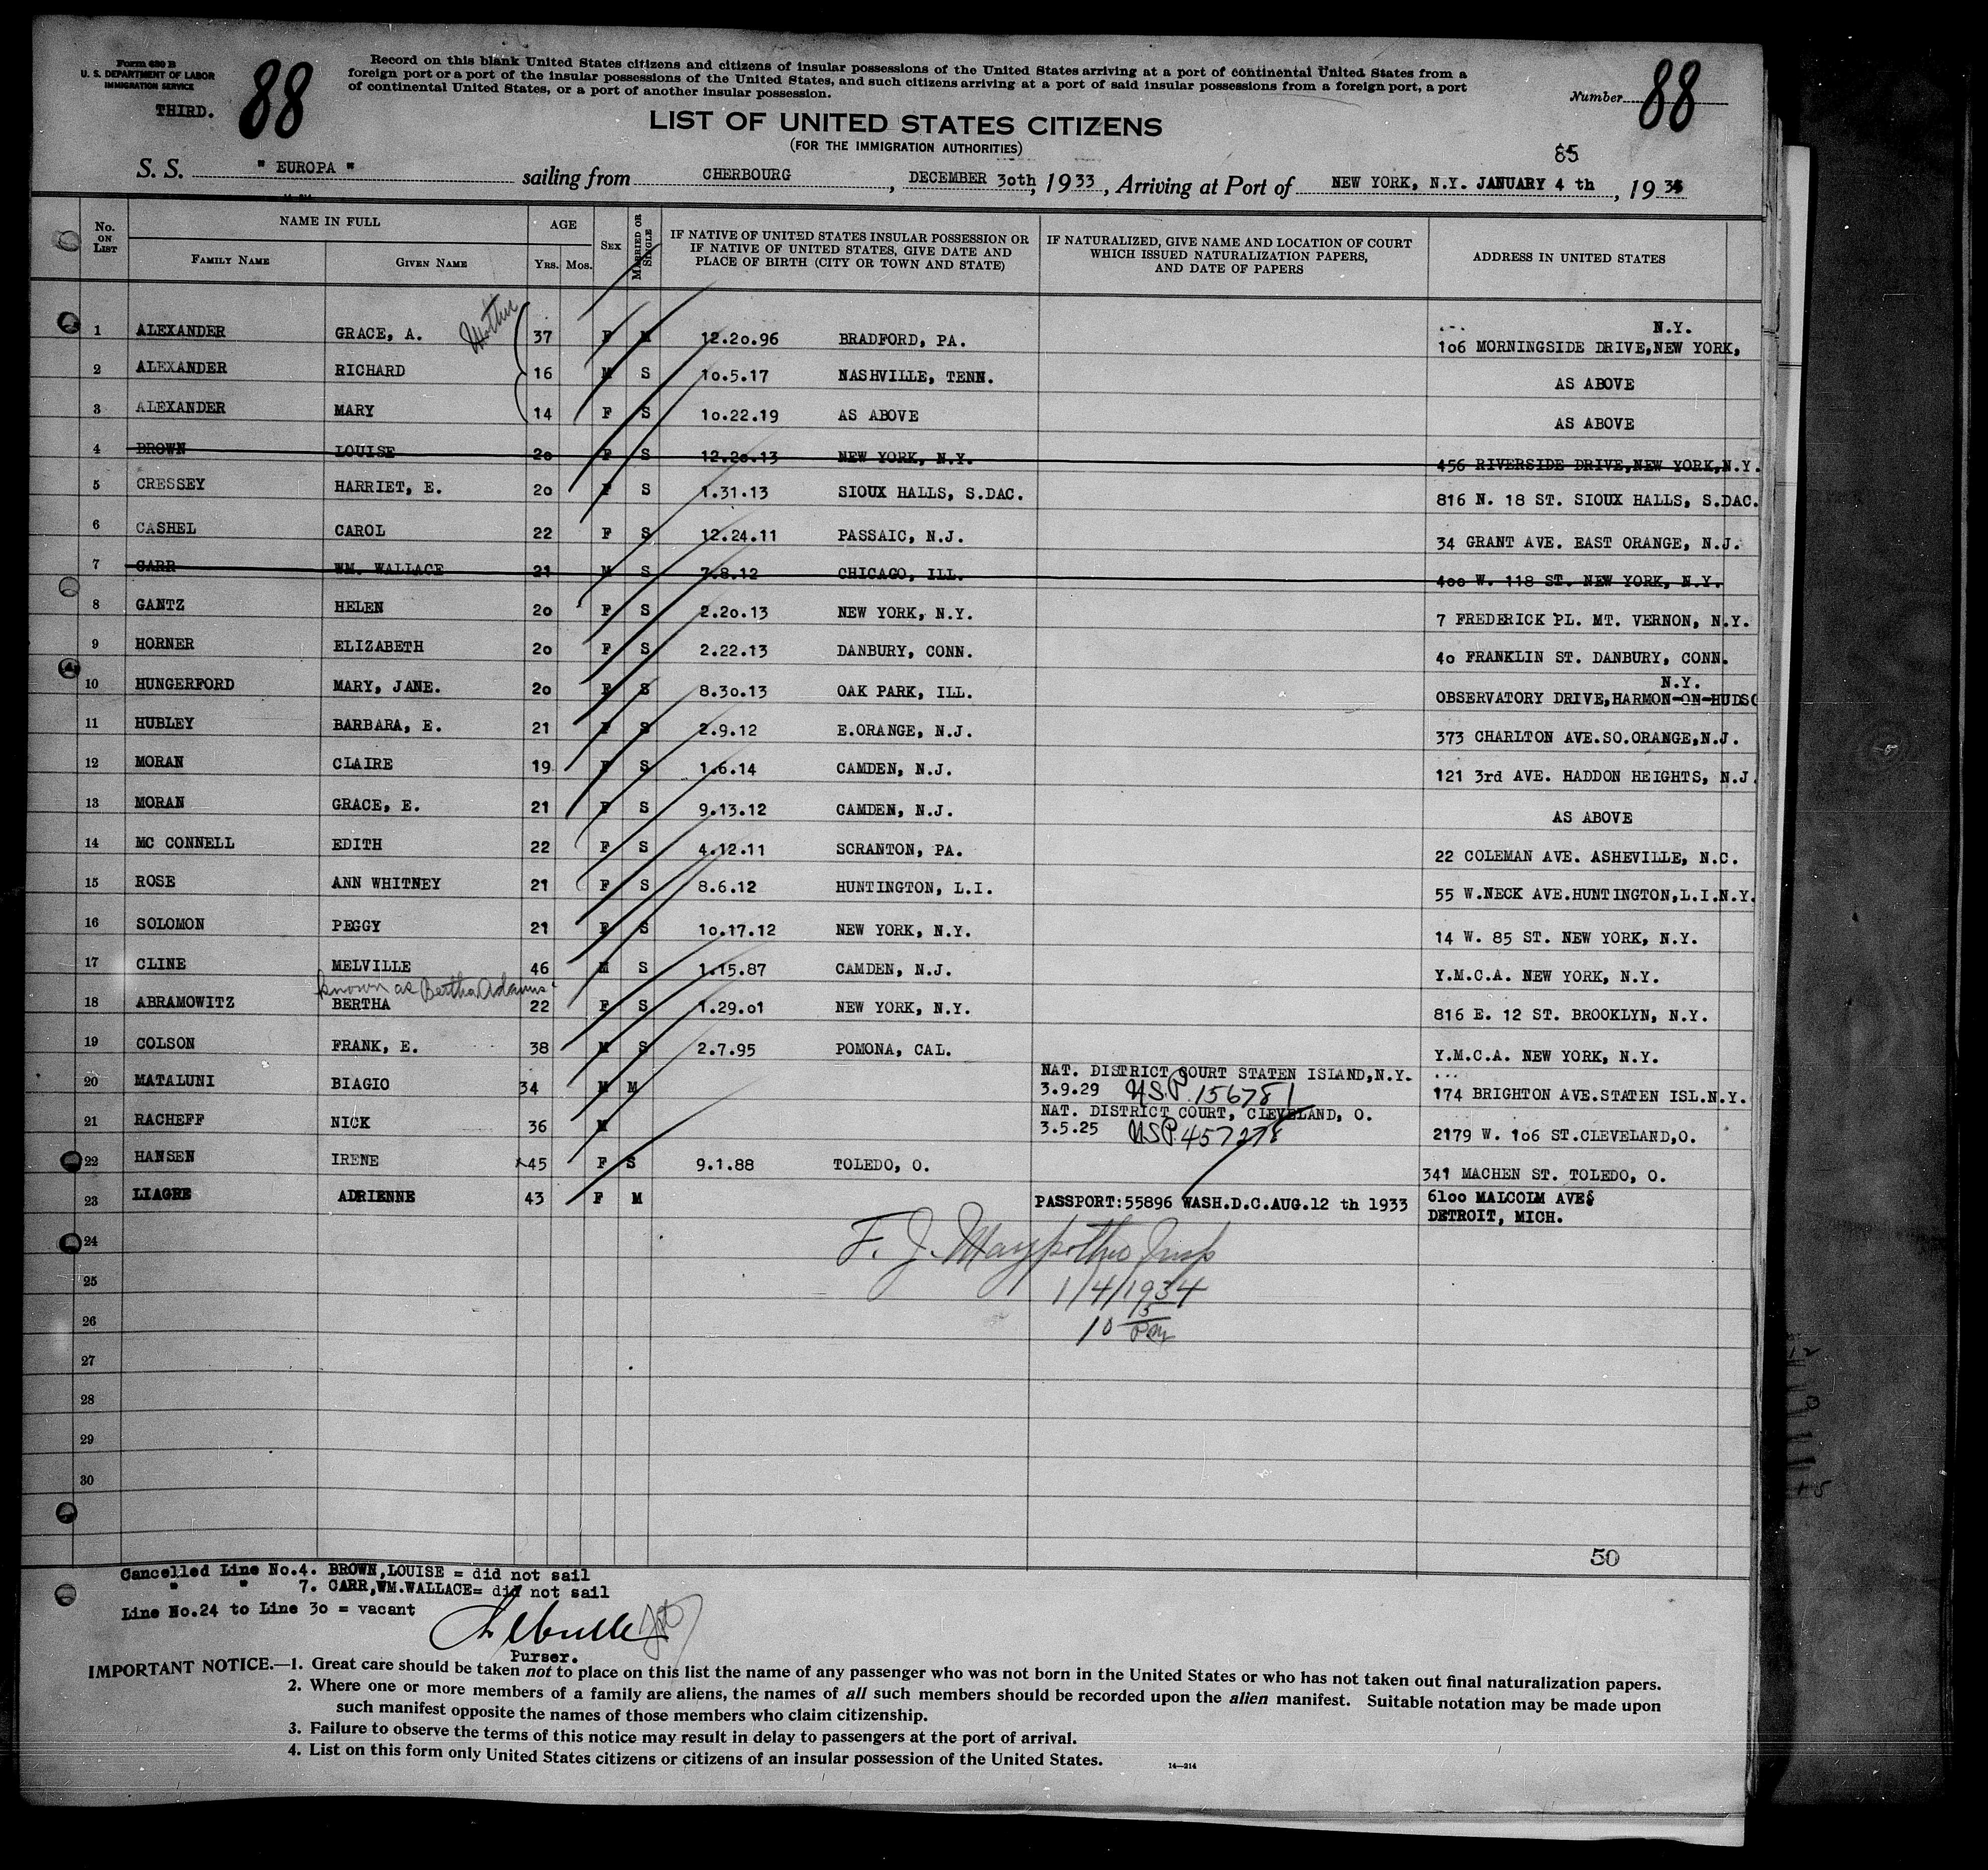 Form 630 B
U. S. DEPARTMENT OF LABOR
IMMIGRATION SERVICE
THIRD.
88
Record on this blank United States citizens and citizens of insular possessions of the United States arriving at a port of continental United States from a
foreign port or a port of the insular possessions of the United States, and such citizens arriving at a port of said insular possessions from a foreign port, a port
of continental United States, or a port of another insular possession.
Number 88
LIST OF UNITED STATES CITIZENS
(FOR THE IMMIGRATION AUTHORITIES)
85
S. S. " EUROPA " sailing from CHERBOURG, DECEMBER 30th, 1933, Arriving at Port of NEW YORK, N.Y. JANUARY 4 th, 1934
No. ON LIST NAME IN FULL FAMILY NAME GIVEN NAME AGE YRS. MOS. SEX MARRIED OR SINGLE IF NATIVE OF UNITED STATES INSULAR POSSESSION OR IF NATIVE OF UNITED STATES, GIVE DATE AND PLACE OF BIRTH (CITY OR TOWN AND STATE) IF NATURALIZED, GIVE NAME AND LOCATION OF COURT WHICH ISSUED NATURALIZATION PAPERS, AND DATE OF PAPERS ADDRESS IN UNITED STATES
1 ALEXANDER GRACE, A. Mother 37 F M 12.20.96 BRADFORD, PA. 106 MORNINGSIDE DRIVE,NEW YORK, N.Y.
2 ALEXANDER RICHARD 16 M S 10.5.17 NASHVILLE, TENN. AS ABOVE
3 ALEXANDER MARY 14 F S 10.22.19 AS ABOVE AS ABOVE
4 BROWN LOUISE 20 F S 12.20.13 NEW YORK, N.Y. 456 RIVERSIDE DRIVE,NEW YORK,N.Y.
5 CRESSEY HARRIET, E. 20 F S 1.31.13 SIOUX HALLS, S.DAC. 816 N. 18 ST. SIOUX HALLS, S.DAC.
6 CASHEL CAROL 22 F S 12.24.11 PASSAIC, N.J. 34 GRANT AVE. EAST ORANGE, N.J.
7 CARR WM. WALLACE 21 M S 7.8.12 CHICAGO, ILL. 400 W. 118 ST. NEW YORK, N.Y.
8 GANTZ HELEN 20 F S 2.20.13 NEW YORK, N.Y. 7 FREDERICK PL. MT. VERNON, N.Y.
9 HORNER ELIZABETH 20 F S 2.22.13 DANBURY, CONN. 40 FRANKLIN ST. DANBURY, CONN.
10 HUNGERFORD MARY, JANE. 20 F S 8.30.13 OAK PARK, ILL. OBSERVATORY DRIVE,HARMON-ON-HUDSO N.Y.
11 HUBLEY BARBARA, E. 21 F S 2.9.12 E.ORANGE, N.J. 373 CHARLTON AVE.SO.ORANGE,N.J.
12 MORAN CLAIRE 19 F S 1.6.14 CAMDEN, N.J. 121 3rd AVE. HADDON HEIGHTS, N.J.
13 MORAN GRACE, E. 21 F S 9.13.12 CAMDEN, N.J. AS ABOVE
14 MC CONNELL EDITH 22 F S 4.12.11 SCRANTON, PA. 22 COLEMAN AVE. ASHEVILLE, N.C.
15 ROSE ANN WHITNEY 21 F S 8.6.12 HUNTINGTON, L.I. 55 W.NECK AVE.HUNTINGTON,L.I.N.Y.
16 SOLOMON PEGGY 21 F S 10.17.12 NEW YORK, N.Y. 14 W. 85 ST. NEW YORK, N.Y.
17 CLINE MELVILLE 46 M S 1.15.87 CAMDEN, N.J. Y.M.C.A. NEW YORK, N.Y.
known as Bertha Adams
18 ABRAMOWITZ BERTHA 22 F S 1.29.01 NEW YORK, N.Y. 816 E. 12 ST. BROOKLYN, N.Y.
19 COLSON FRANK, E. 38 M S 2.7.95 POMONA, CAL. Y.M.C.A. NEW YORK, N.Y.
20 MATALUNI BIAGIO 34 M M NAT. DISTRICT COURT STATEN ISLAND,N.Y. 3.9.29 U.S.P. 156781 174 BRIGHTON AVE.STATEN ISL.N.Y.
21 RACHEFF NICK 36 M NAT. DISTRICT COURT, CLEVELAND, O. 3.5.25 USP. 457278 2179 W. 106 ST.CLEVELAND,O.
22 HANSEN IRENE 45 F S 9.1.88 TOLEDO, O. 341 MACHEN ST. TOLEDO, O.
23 LIAGRE ADRIENNE 43 F M PASSPORT:55896 WASH.D.C.AUG.12 th 1933 6100 MALCOLM AVE§ DETROIT, MICH.
24
F. J.
25
1/4/1934
26
10 15 PM
27
28
29
30
50
Cancelled Line No.4. BROWN,LOUISE = did not sail
" " 7. CARR,WM.WALLACE= did not sail
Line No.24 to Line 30 = vacant
Purser.
IMPORTANT NOTICE.—1. Great care should be taken not to place on this list the name of any passenger who was not born in the United States or who has not taken out final naturalization papers.
2. Where one or more members of a family are aliens, the names of all such members should be recorded upon the alien manifest. Suitable notation may be made upon
such manifest opposite the names of those members who claim citizenship.
3. Failure to observe the terms of this notice may result in delay to passengers at the port of arrival.
4. List on this form only United States citizens or citizens of an insular possession of the United States.
14—214